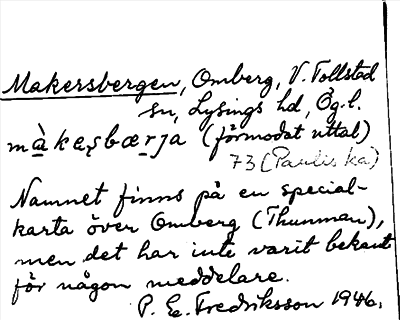 Makersbergen, Omberg, V. Tollstad
sn, Lysings hd, Ög.l.
màkeʂbærja (förmodat uttal)
73 (Paulis ka)
Namnet finns på en special-
karta över Omberg (Thunman),
men det har inte varit bekant
för någon meddelare.
P. E. Fredriksson 1946.